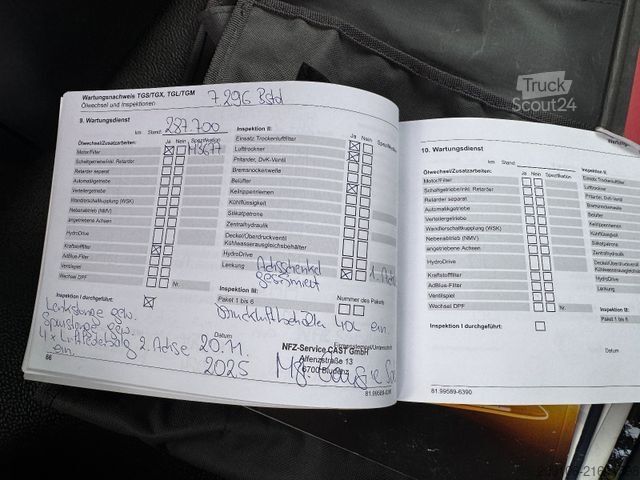 Truck
Scout24
Wartungsnachweis TGS/TGX, TGL/TGM
Ölwechsel und Inspektionen
7296 Bstd
9. Wartungsdienst
km Stand: 287.700
Ölwechsel/Zusatzarbeiten: Ja Nein Spezifikation
Motor/Filter M3677
Schaltgetriebe/inkl. Retarder
Retarder separat
Automatikgetriebe
Verteilergetriebe
Wandlerschaltkupplung (WSK)
Nebenabtrieb (NMV)
angetriebene Achsen
HydroDrive
Kraftstofffilter
AdBlue-Filter
Ventilspiel
Wechsel DPF Nr.
Inspektion I durchgeführt:
Inspektion II: Ja Nein Spezifikation
Einsatz Trockenluftfilter
Lufttrockner
Pritarder, DvK-Ventil
Bremsnockenwelle
Belüfter
Keilrippenriemen
Kühlflüssigkeit
Silikatpatrone
Zentralhydraulik
Deckel/Überdruckventil
Kühlwasserausgleichsbehälter
HydroDrive
Lenkung Achsschenkel 1. Achse
geschmiert
Inspektion III:
Paket 1 bis 6 Nummer des Pakets
Druckluftbehälter 40L ein.
Lenkstange gew.
Spurstange gew.
4x Luftfederbalg 2. Achse
ein.
Datum
20.11.
2025
Firmenstempel/Unterschrift
NFZ-Service CAST GmbH
Alfenzstraße 13
6700 Bludenz
86
81.99589-6390
10. Wartungsdienst
km Stand:
Ölwechsel/Zusatzarbeiten: Ja Nein Spezifikation
Motor/Filter
Schaltgetriebe/inkl. Retarder
Retarder separat
Automatikgetriebe
Verteilergetriebe
Wandlerschaltkupplung (WSK)
Nebenabtrieb (NMV)
angetriebene Achsen
HydroDrive
Kraftstofffilter
AdBlue-Filter
Ventilspiel
Wechsel DPF Nr.
Inspektion I durchgeführt:
Inspektion II:
Einsatz Trockenluftfilter
Lufttrockner
Pritarder, DvK-Ventil
Bremsnockenwelle
Belüfter
Keilrippenriemen
Kühlflüssigkeit
Silikatpatrone
Zentralhydraulik
Deckel/Überdruckventil
Kühlwasserausgleichsbehälter
HydroDrive
Lenkung
Inspektion III:
Paket 1 bis 6
Datum
81.99589-6390